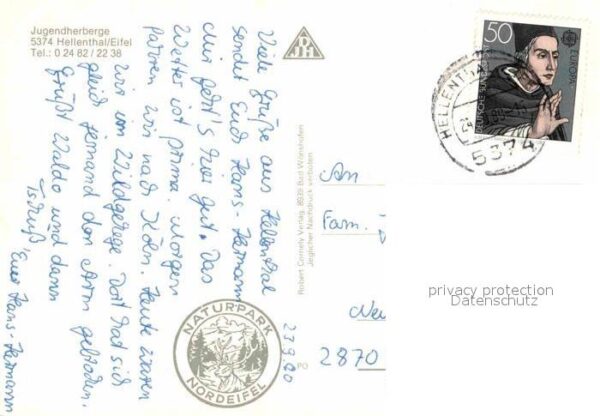 Jugendherberge
5374 Hellenthal/Eifel
Tel.: 0 24 82 / 22 38
Viele Grüße aus Hellenthal
sendet Euch Hans-Hermann.
Mir geht's hier gut. Das
Wetter ist prima. Morgen
fahren wir nach Köln. Heute waren
wir im Wildgehege. Dort hat sich
gleich jemand den Arm gebrochen.
Grüßt Waldo und
Tschüß,
Euer Hans-Hermann
DJH
Robert Cornely Verlag, 8939 Bad Wörishofen
Jeglicher Nachdruck verboten
NATURPARK
NORDEIFEL
23.9.80
50
EUROPA
DEUTSCHE BUNDESPOST
HELLENTHAL
5374
An
Fam.
2870
privacy protection
Datenschutz